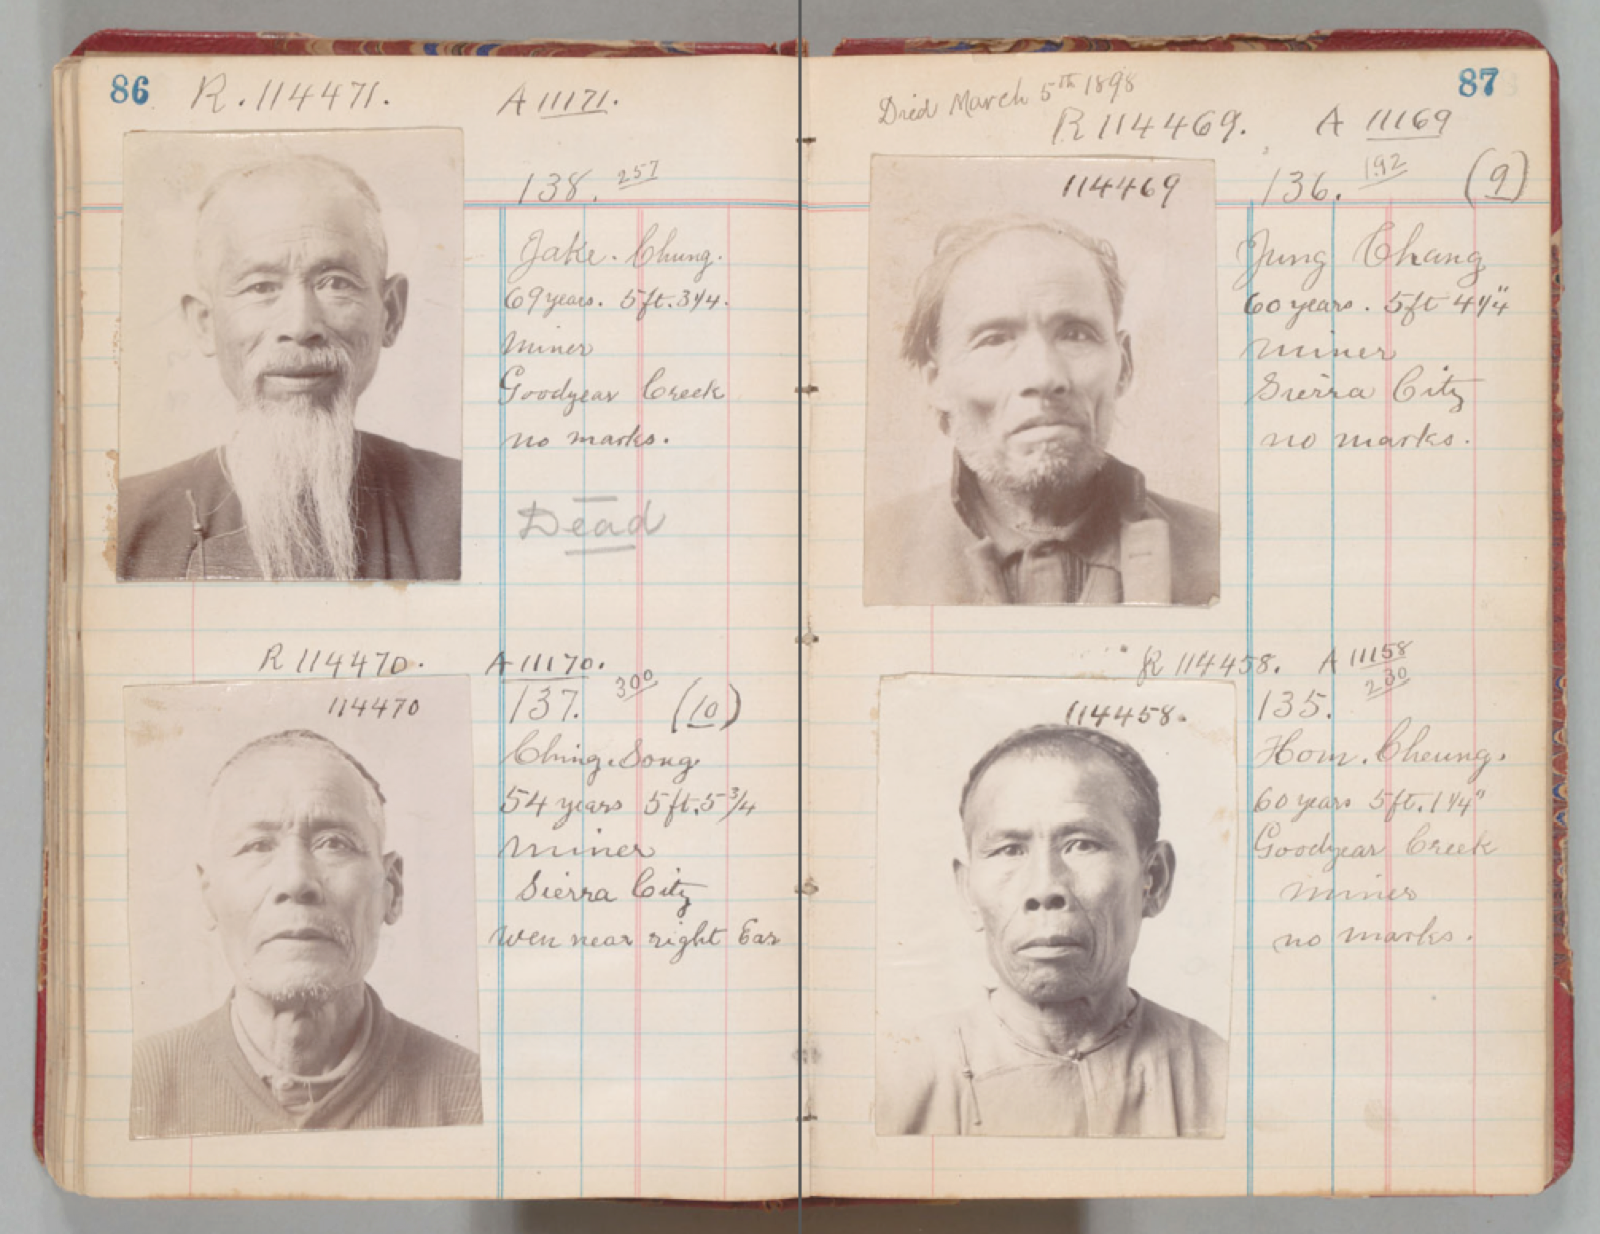 86
R. 114471.
A 11171.
138. 257
Jake. Chung.
69 years. 5ft. 3 1/4.
Miner
Goodyear Creek
no marks.
Dead
R 114470.
A 11170.
114470
137. 300 (10)
Ching. Song.
54 years 5ft. 5 3/4
Miner
Sierra City
Wen near right Ear
87
Died March 5th 1898
R 114469. A 11169
114469
136. 192 (9)
Jung Chang
60 years. 5ft 4 1/4"
Miner
Sierra City
no marks.
R 114458. A 11158
114458.
135. 230
Hom. Cheung.
60 years 5ft. 1 1/4"
Goodyear Creek
Miner
no marks.